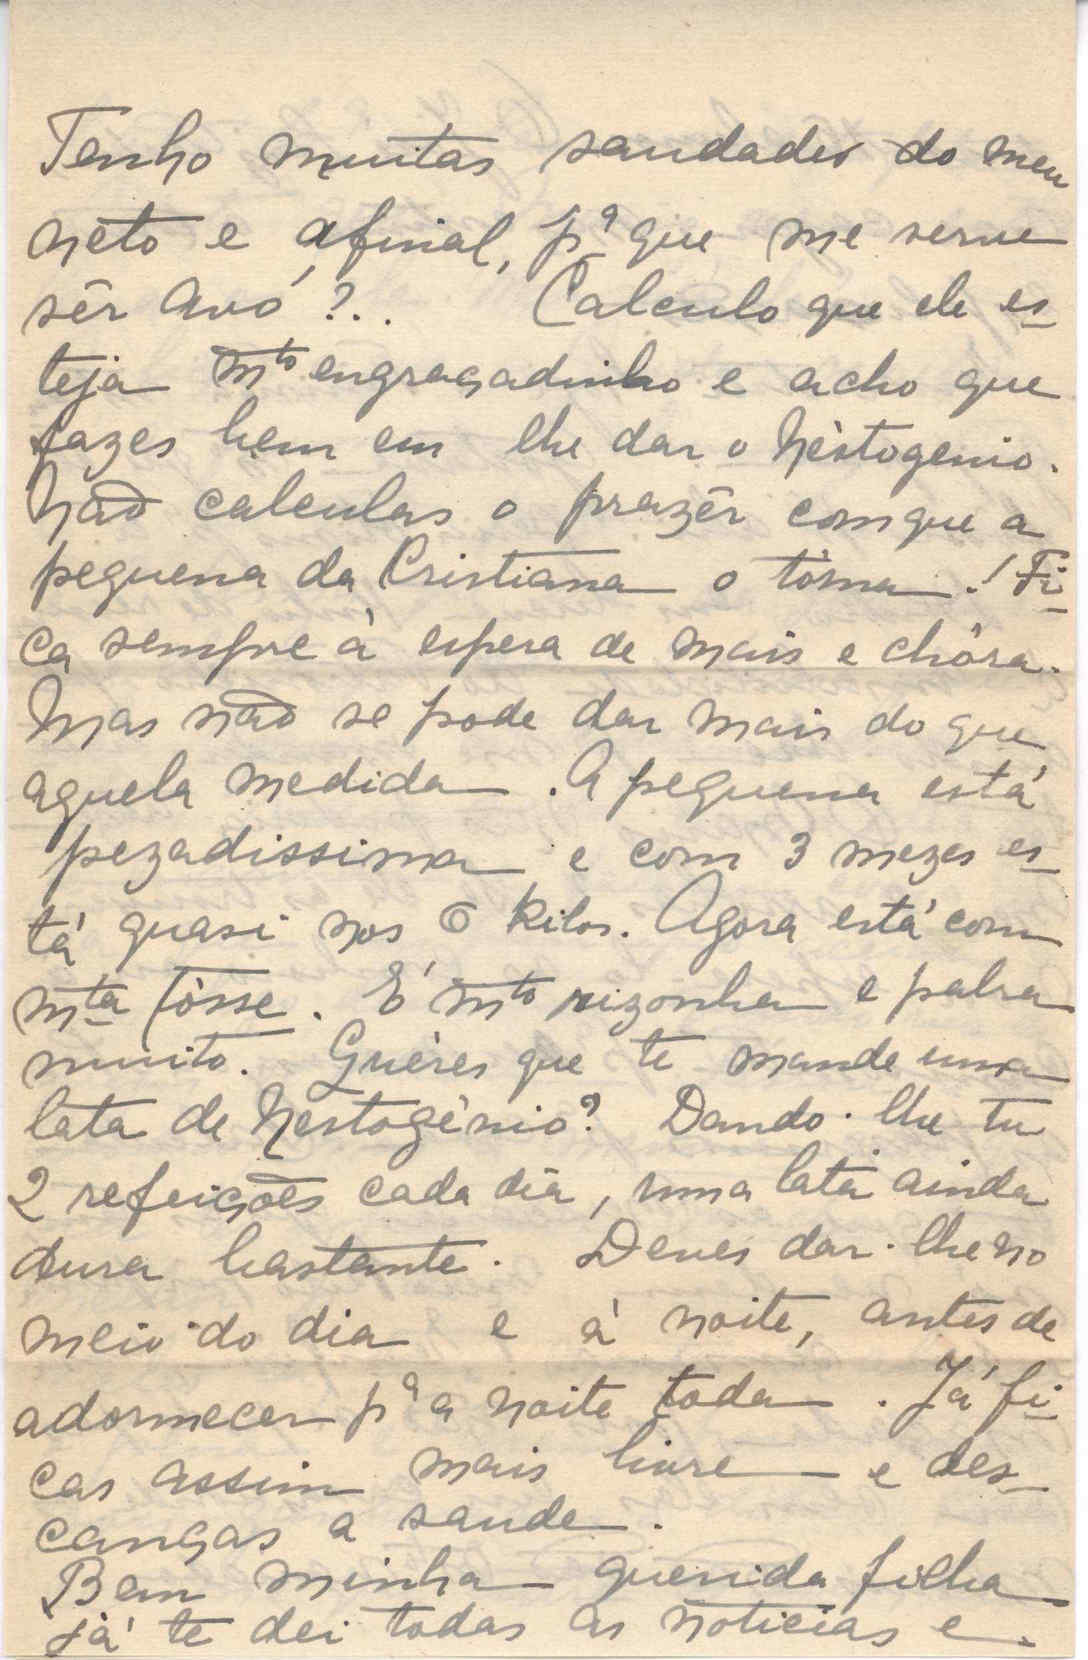 Tenho muitas saudades do meu
néto e afinal, pª que me serve
sêr Avó?.. Calculo que ele es-
teja mto engraçadinho e acho que
fazes bem em lhe dar o Nèstogenio.
Não calculas o prazêr com que a
pequena da Cristiana o tóma! Fi-
ca sempre à espera de mais e chóra.
Mas não se pode dar mais do que
aquela medida. A pequena está
pezadissima e com 3 mezes es-
tá quasi nos 6 kilos. Agora está com
mta tósse. É mto rizonha e palra
muito. Quéres que te mande uma
lata de Nestogénio? Dando-lhe tu
2 refeições cada dia, uma lata ainda
dura bastante. Deves dar-lhe no
meio do dia e à noite, antes de
adormecer pª a noite toda. Já fi-
cas assim mais livre e des-
canças a saude.
Bem minha querida filha
já te dei todas as noticias e